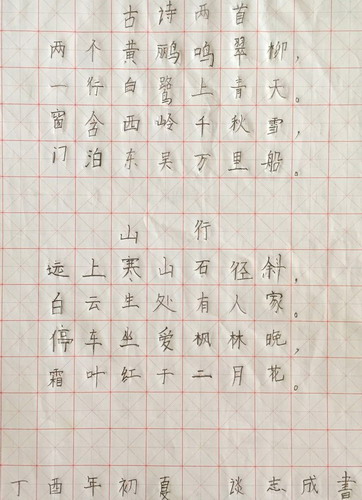 古诗两首
两个黄鹂鸣翠柳，
一行白鹭上青天。
窗含西岭千秋雪，
门泊东吴万里船。
山行
远上寒山石径斜，
白云生处有人家。
停车坐爱枫林晚，
霜叶红于二月花。
丁酉年初夏 谈志成書